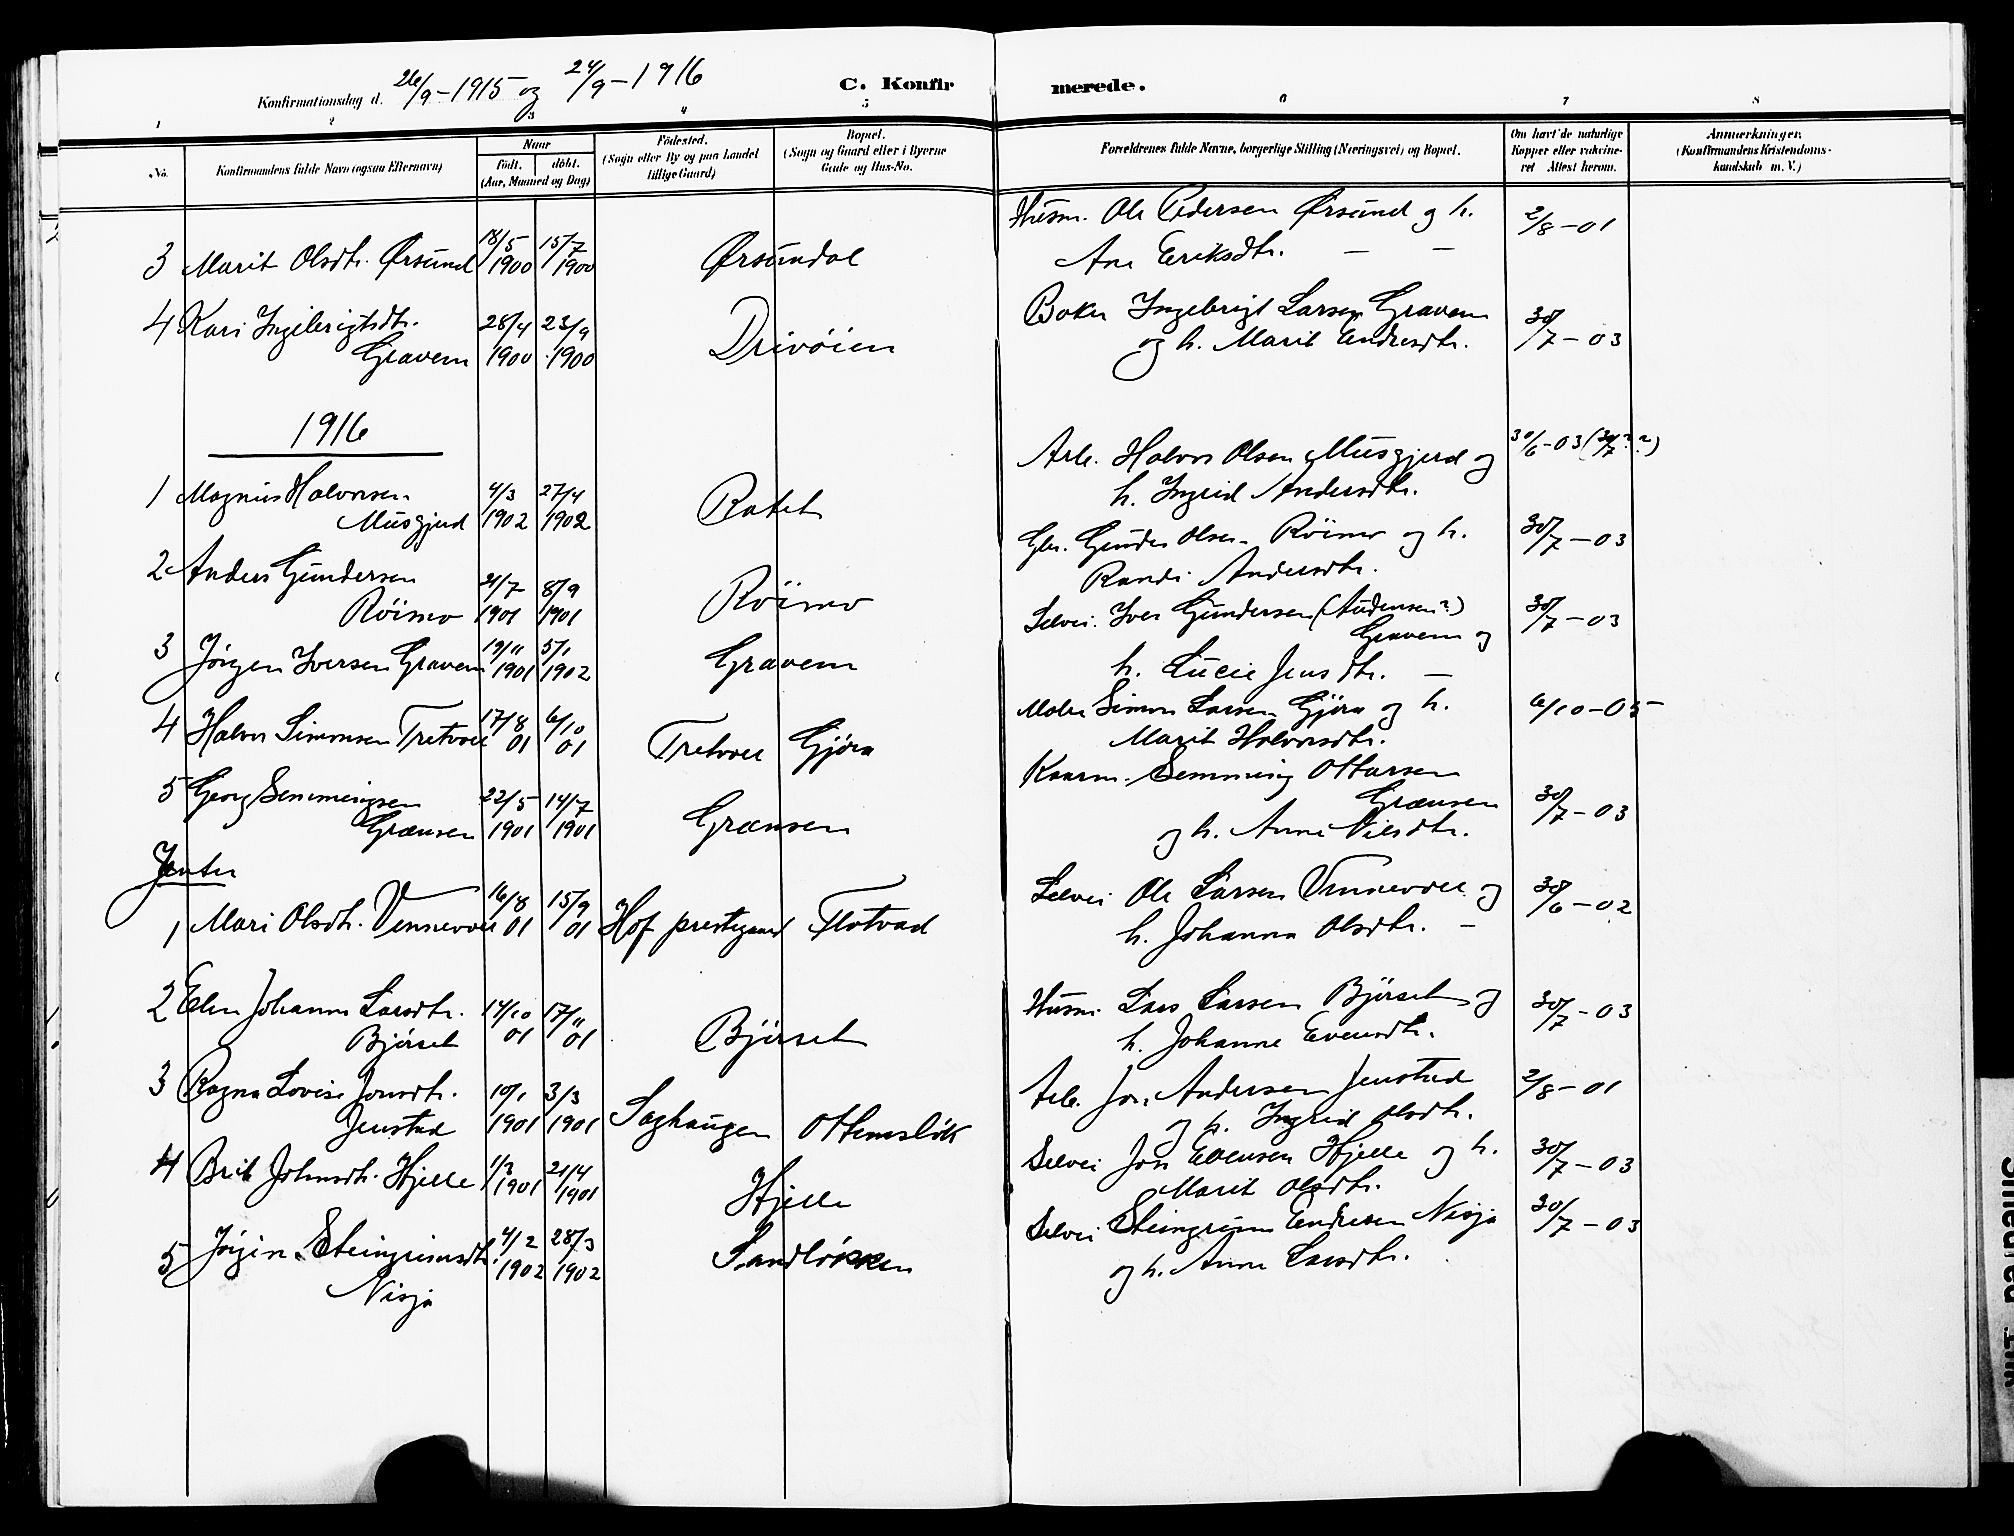 Konfirmationsdag d. 26/9-1915 og 24/9-1916
C. Konfirmerede.
1 2 3 4 5 6 7 8
No.
Konfirmandens fulde Navn (ogsaa Efternavn)
Naar
født. døbt.
(Aar, Maaned og Dag)
Fødested.
(Sogn eller By og paa Landet
tillige Gaard)
Bopæl.
(Sogn og Gaard eller i Byerne
Gade og Hus-No.
Forældrenes fulde Navne, borgerlige Stilling (Næringsvei) og Bopæl.
Om havt de naturlige
Kopper eller vakcine-
ret Attest herom.
Anmærkninger.
(Konfirmandens Kristendoms-
kundskab m. V.)
Husm. Ole Pedersen Ørsund og h. 2/8-01
3 Marit Olsdtr. Ørsund 18/5 1900 15/7 1900 Ørsundal Ane Eriksdtr. — —
4 Kari Ingebrigtsdtr. 28/4 23/9 Ingebrigt Larsen Gravem 30/7-03
Gravem 1900 1900 Drivøien og h. Marit Endresdtr.
1916
Arb. Halvor Olsen Musgjerd og 30/6-03 (30/7?)
1 Magnus Halvorsen 4/3 27/4 h. Ingrid Andersdtr.
Musgjerd 1902 1902 Ratet
Gbr. Gunder Olsen Röimo og h. 30/7-03
2 Anders Gundersen Randi Andersdtr.
Röimo 21/7 1901 8/9 1901 Röimo
Selvei. Iver Gundersen (Audensen?) 30/7-03
Gravem og
3 Jørgen Iversen Gravem 19/11 1901 5/1 1902 Gravem h. Lucie Jensdtr. —
4 Halvor Simonsen Tretvoll 17/8 01 6/10 01 Tretvoll Gjöra
Maler Simon Larsen Gjöra og h. 6/10-05
Marit Halvorsdtr.
Semming Ottarsen
5 Georg Semmingsen 22/5 14/7 Grænsen 30/7-03
Grænsen 1901 1901 Grænsen og h. Anne Nilsdtr.
Jenter
Selvei Ole Larsen Vennevoll og 30/6-02
1 Mari Olsdtr. Vennevoll 16/8 01 15/9 01 Hof prestegaard Flotvad h. Johanna Olsdtr. —
2 Elen Johanna Larsdtr. 14/10 01 17/11 01 Husm. Lars Larsen Björset og 30/7-03
Björset Björset h. Johanne Evensdtr.
3 Ragna Lovise Jonsdtr. 10/1 3/3 Arb. Jon Andersen Jenstad 2/8-01
Jenstad 1901 1901 Saghaugen Ottemsløk og h. Ingrid Olsdtr.
4 Brit Johnsdtr. Hjelle 1/3 1901 21/4 1901 Hjelle Selvei Jon Evensen Hjelle og h. 30/7-03
Marit Olsdtr.
5 Steingrimsdtr. 4/2 1902 28/3 1902 Sandløkken Selvei Steingrim Endresen Nisja 30/7-03
Nisja og h. Anne Larsdtr.